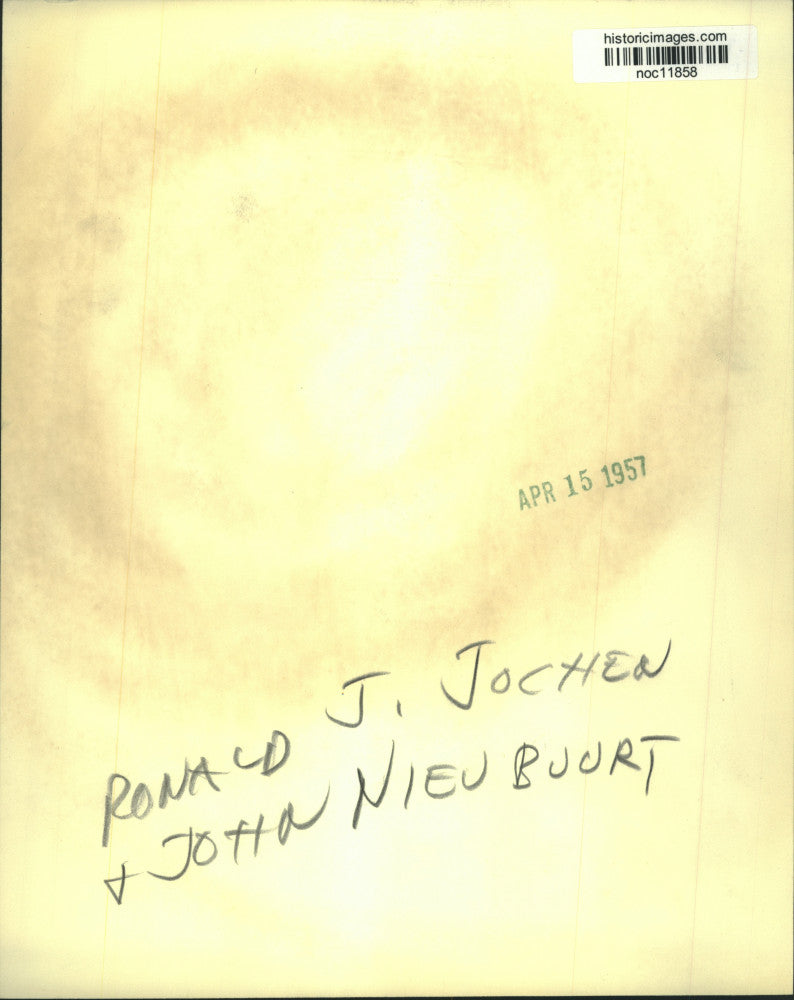 historicimages.com
noc11858
APR 15 1957
RONALD J. JOCHEN
+ JOHN NIEUBUURT